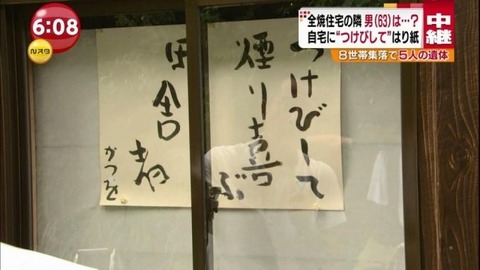 6:08
Nスタ
全焼住宅の隣 男(63)は…?
自宅に"つけびして"はり紙
中継
8世帯集落で5人の遺体
つけびして
煙り喜ぶ
田舎者
かつを